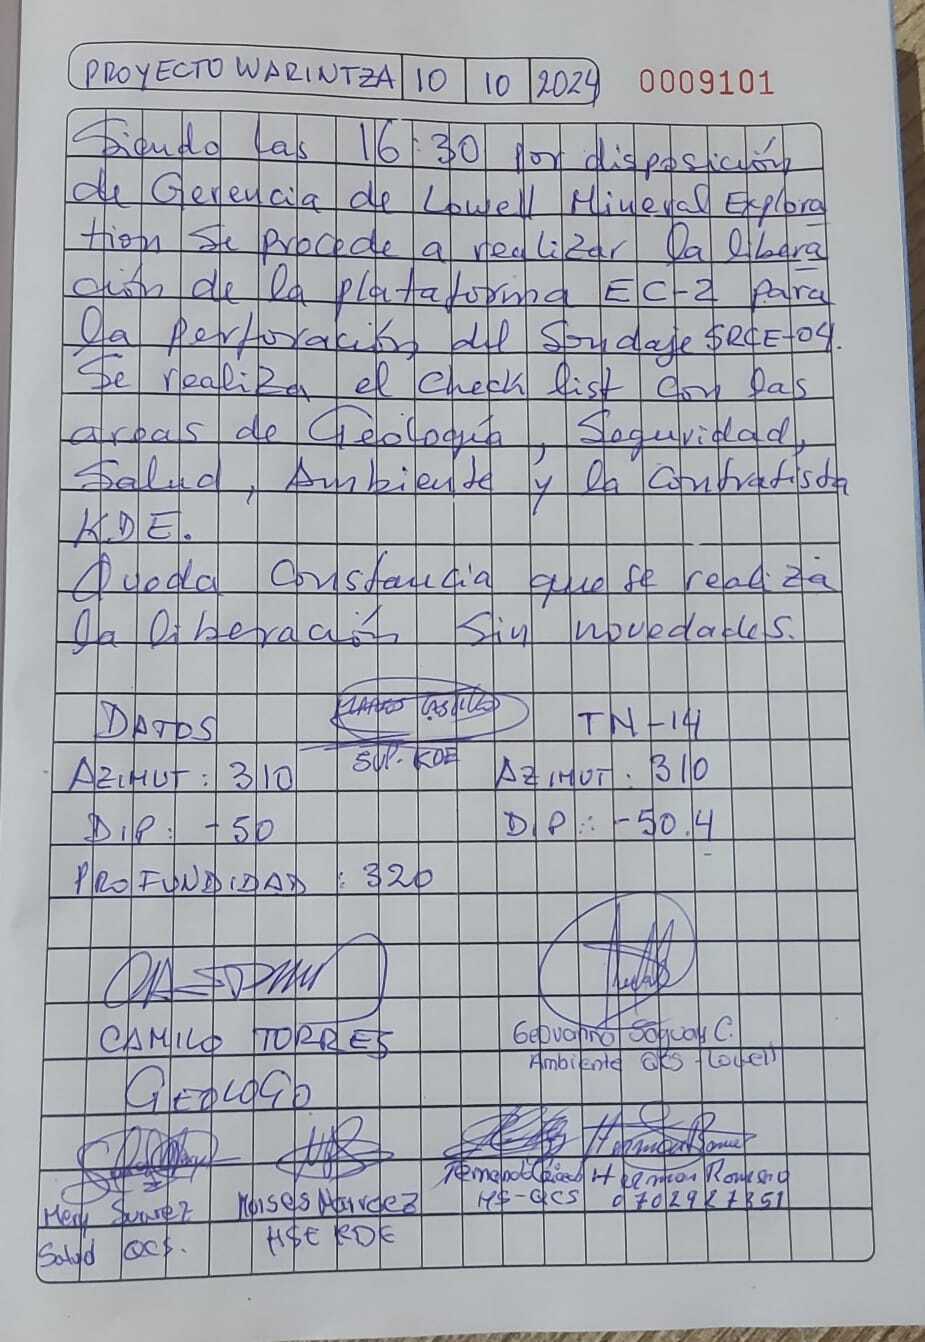 PROYECTO WARINTZA 10 10 2024 0009101
Siendo las 16:30 por disposición
de Gerencia de Lowell Mineral Explora
tion se procede a realizar la libera
ción de la plataforma EC-2 para
la perforación del Sondaje SRCE-04.
Se realiza el check list con las
areas de Geología, Seguridad,
Salud, Ambiente y la Contratista
KDE.
Queda Constancia que se realiza
la liberación Sin novedades.
DATOS TN-14
SUP. KDE
AZIMUT: 310 AZIMUT: 310
DIP: -50 DIP: -50.4
PROFUNDIDAD: 320
CAMILO TORRES
GEOLOGO
Geovanny Saguay C.
Ambiente QCS-Lowell
Mery Suarez
Salud QCS.
Moises Narvaez
HSE KDE
HS-QCS
Herman Romero
0702927351